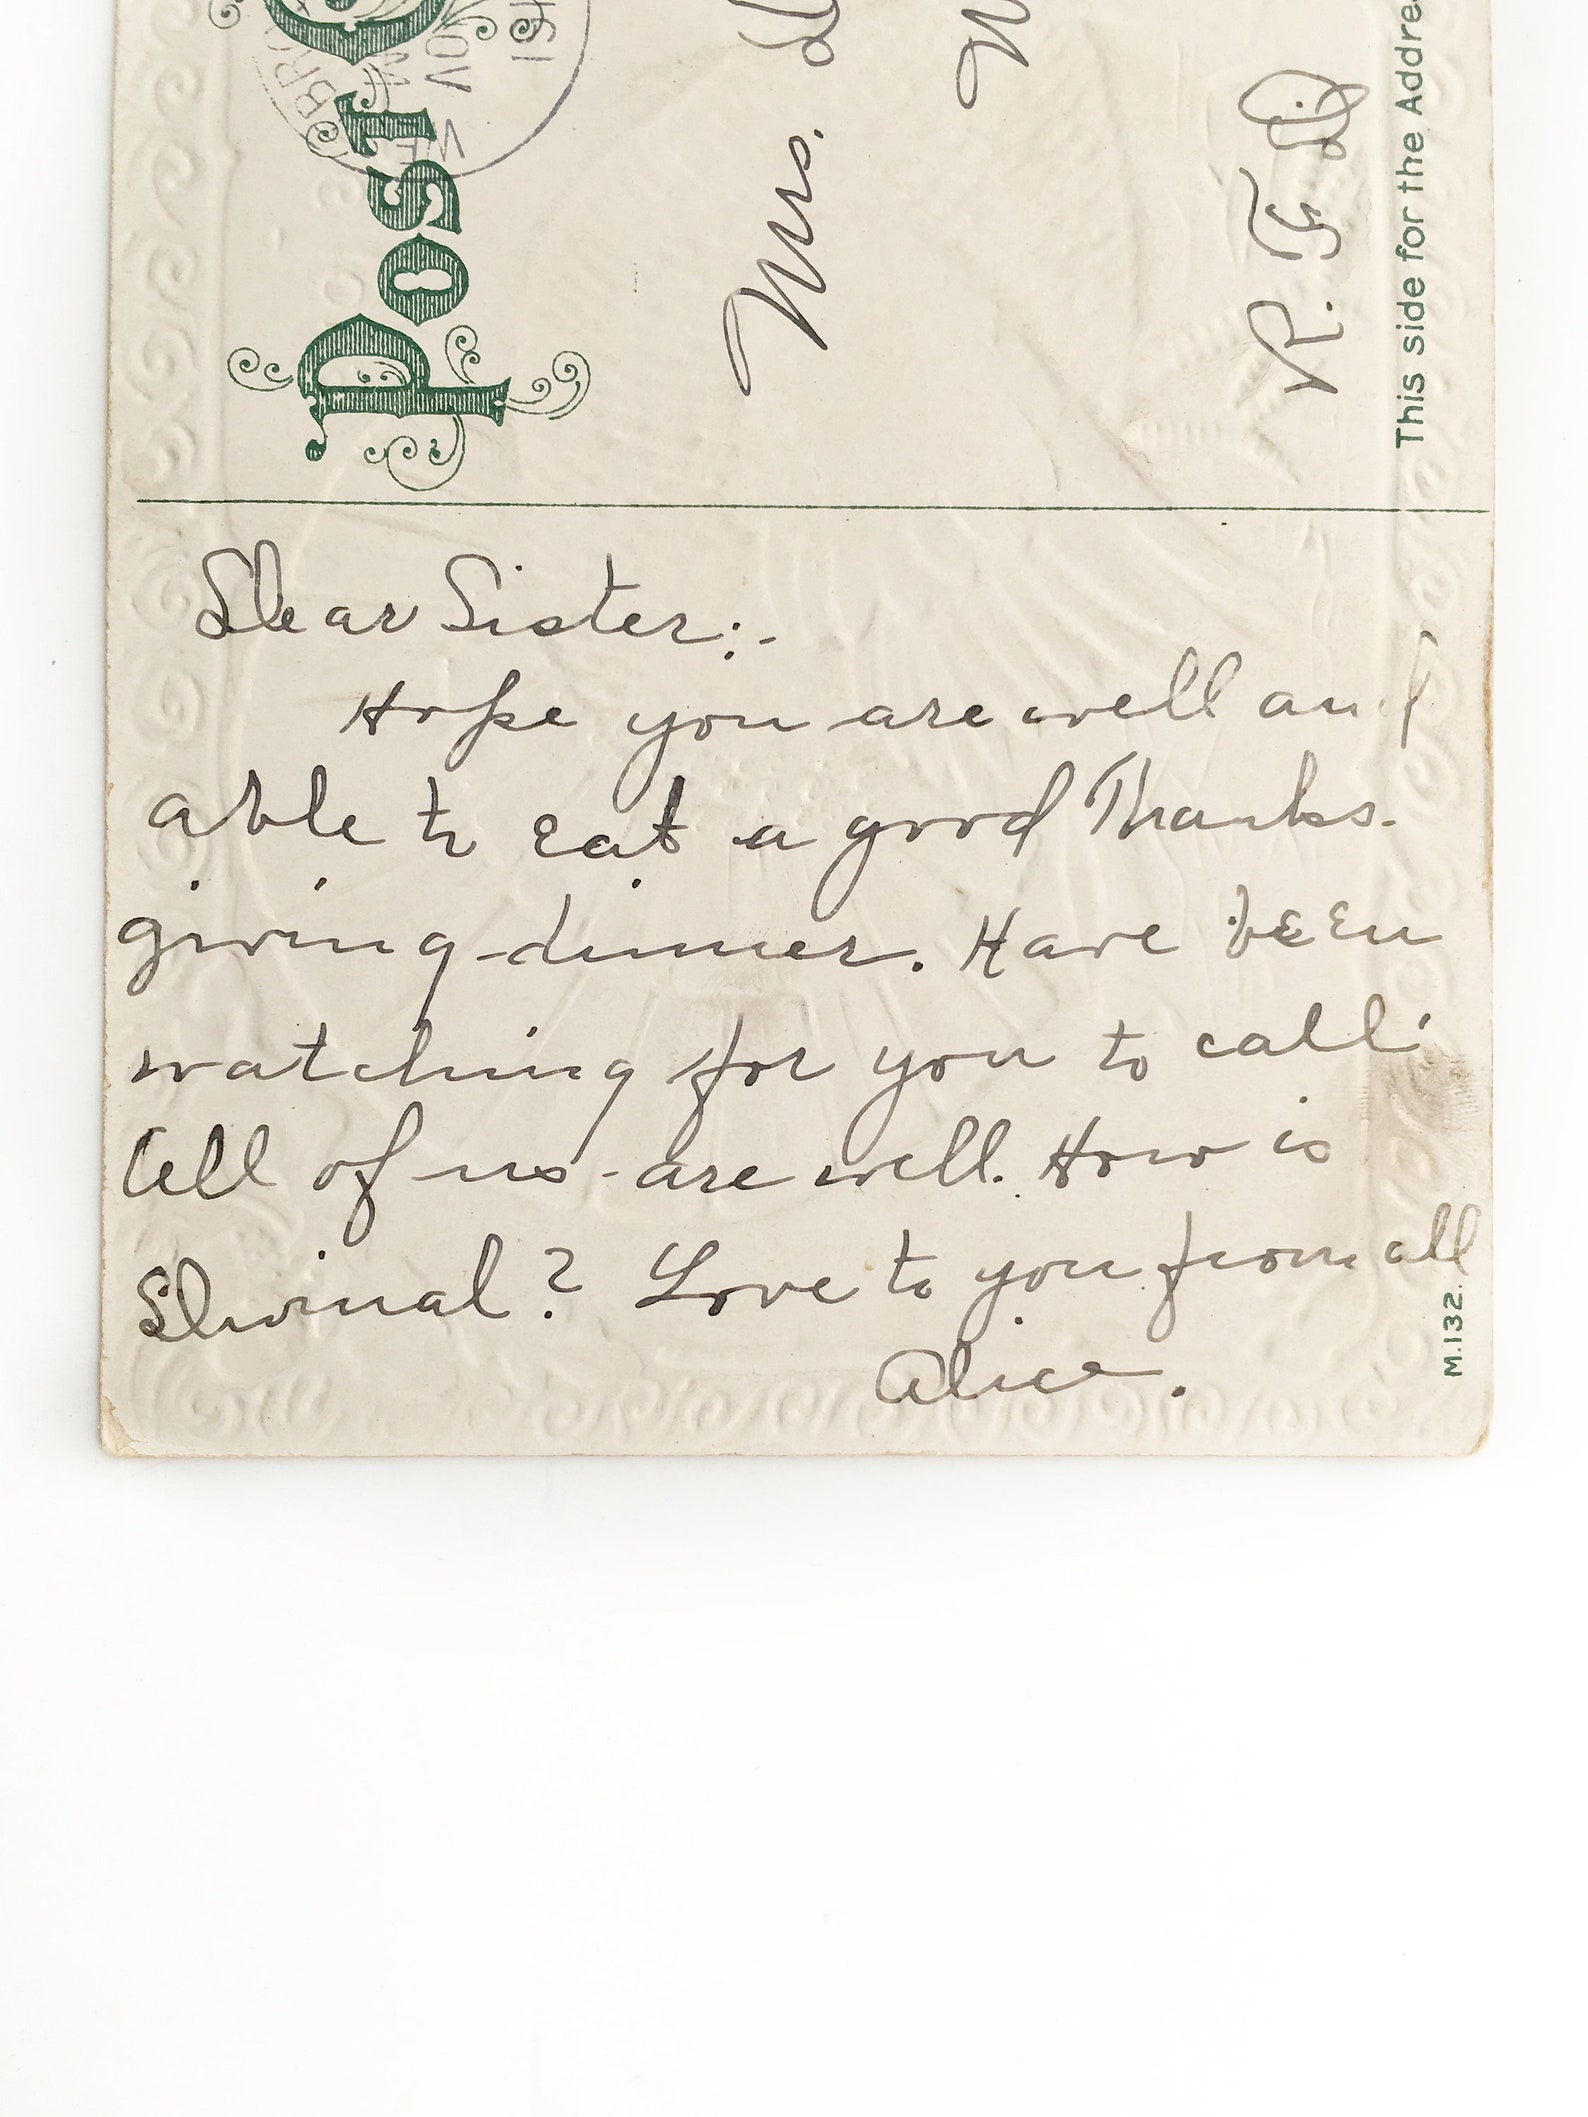 Post
Mrs.
R. F. D
This side for the Addre
Dear Sister:-
Hope you are well and
able to eat a good Thanks-
giving-dinner. Have been
watching for you to call.
All of us-are well. How is
? Love to you from all
Alice.
M.132.
NOV